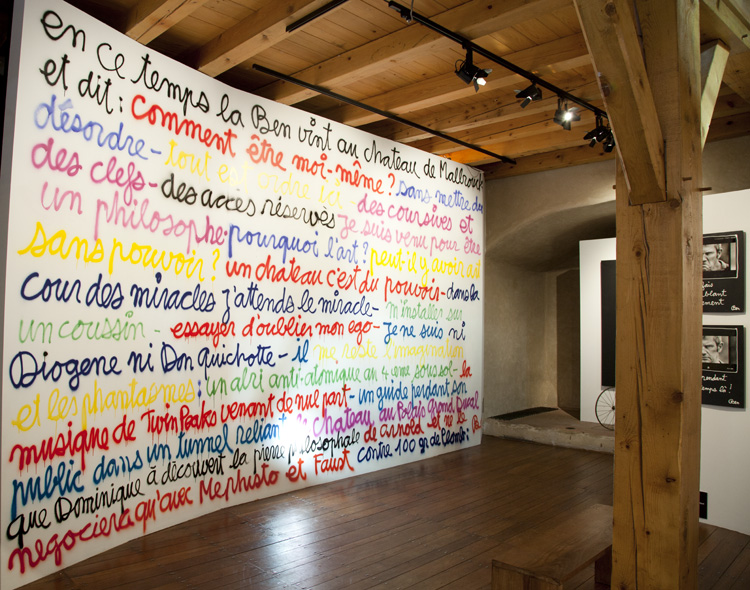 en ce temps la Ben vint au chateau de Malbrouck
et dit: comment être moi-même? sans mettre du
désordre - tout est ordre ici - des coursives et
des clefs - des accès réservés je suis venu pour être
un philosophe. pourquoi l'art? peut-il y avoir art
sans pouvoir? un chateau c'est du pouvoir - dans la
cour des miracles j'attends le miracle - m'installer sur
un coussin - essayer d'oublier mon ego - je ne suis ni
Diogene ni Don quichotte - il me reste l'imagination
et les phantasmes: un abri anti-atomique au 4 eme sous sol - la
musique de Twin Peaks venant de nul part - un guide perdant son
public dans un tunnel reliant le chateau au Palais Grand Ducal
que Dominique à découvert la pierre philosophale de Arnold et ne la
negociera qu'avec Mephisto et Faust contre 100 gr de Plomb!
Ben